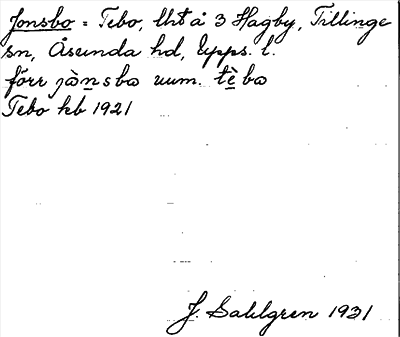 Jonsbo = Tebo, lht å 3 Hagby, Tillinge
sn, Åsunda hd, Upps. l.
förr jὰnsbω uum. tὲbω
Tebo kb 1921
J. Sahlgren 1931